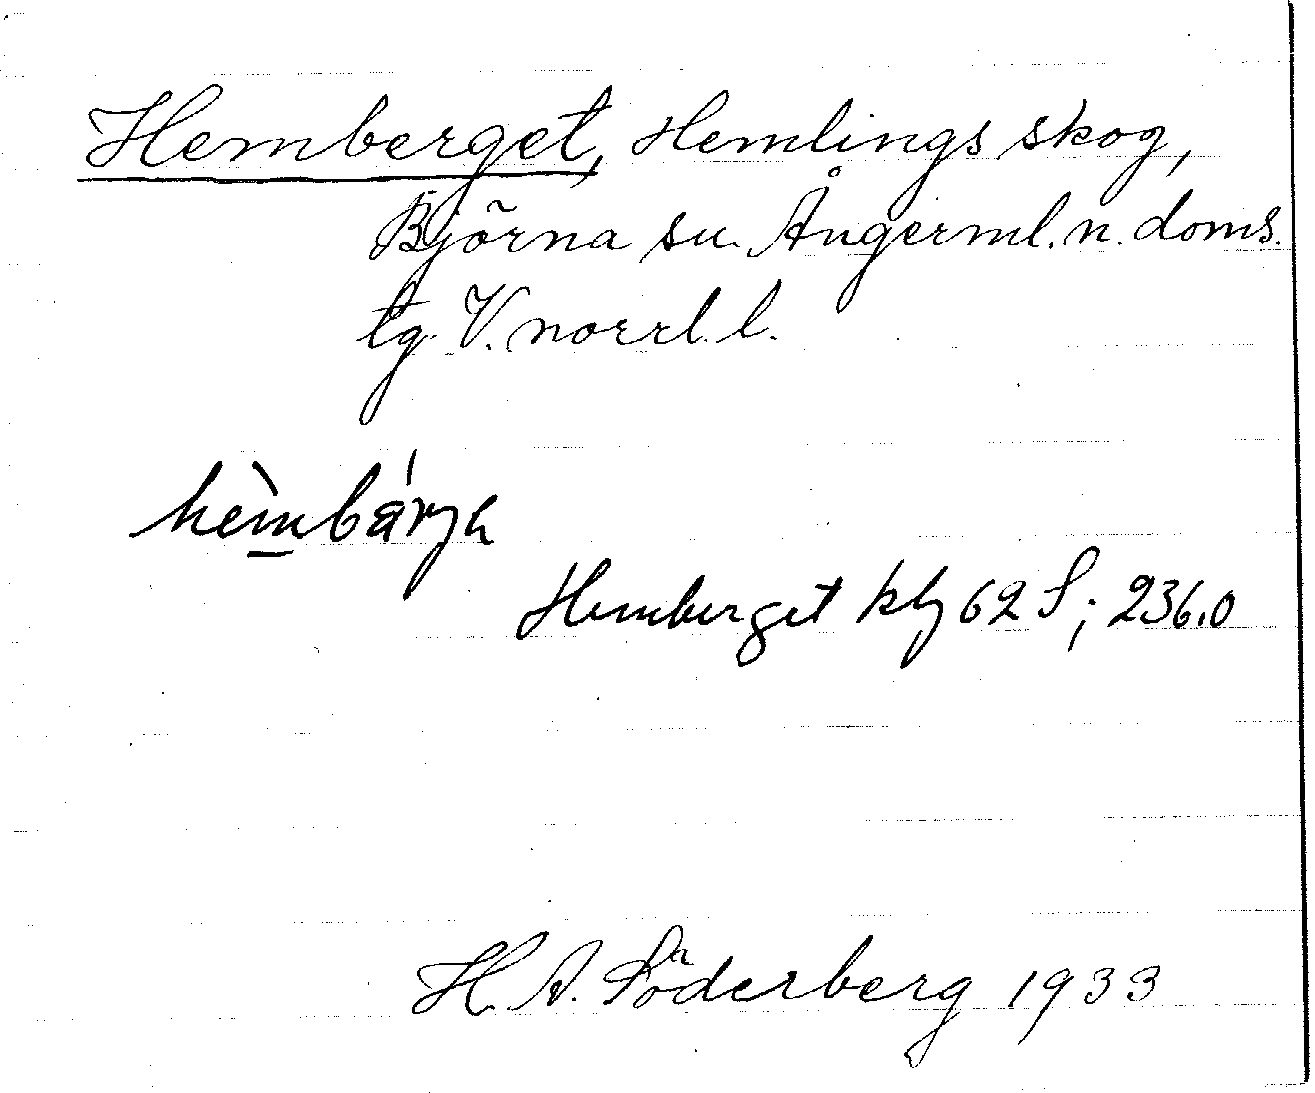 Hemberget, Hemlings skog,
Björna sn. Ångerml. n. doms.
tg. V. norrl. l.
Hemberget kbl 62 S; 236.0
H. A. Söderberg 1933